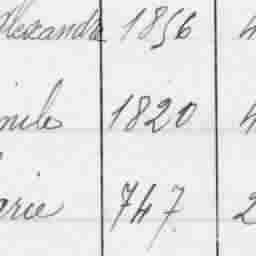 Alexandre 1856 4
mile 1820 4
arie 747 2